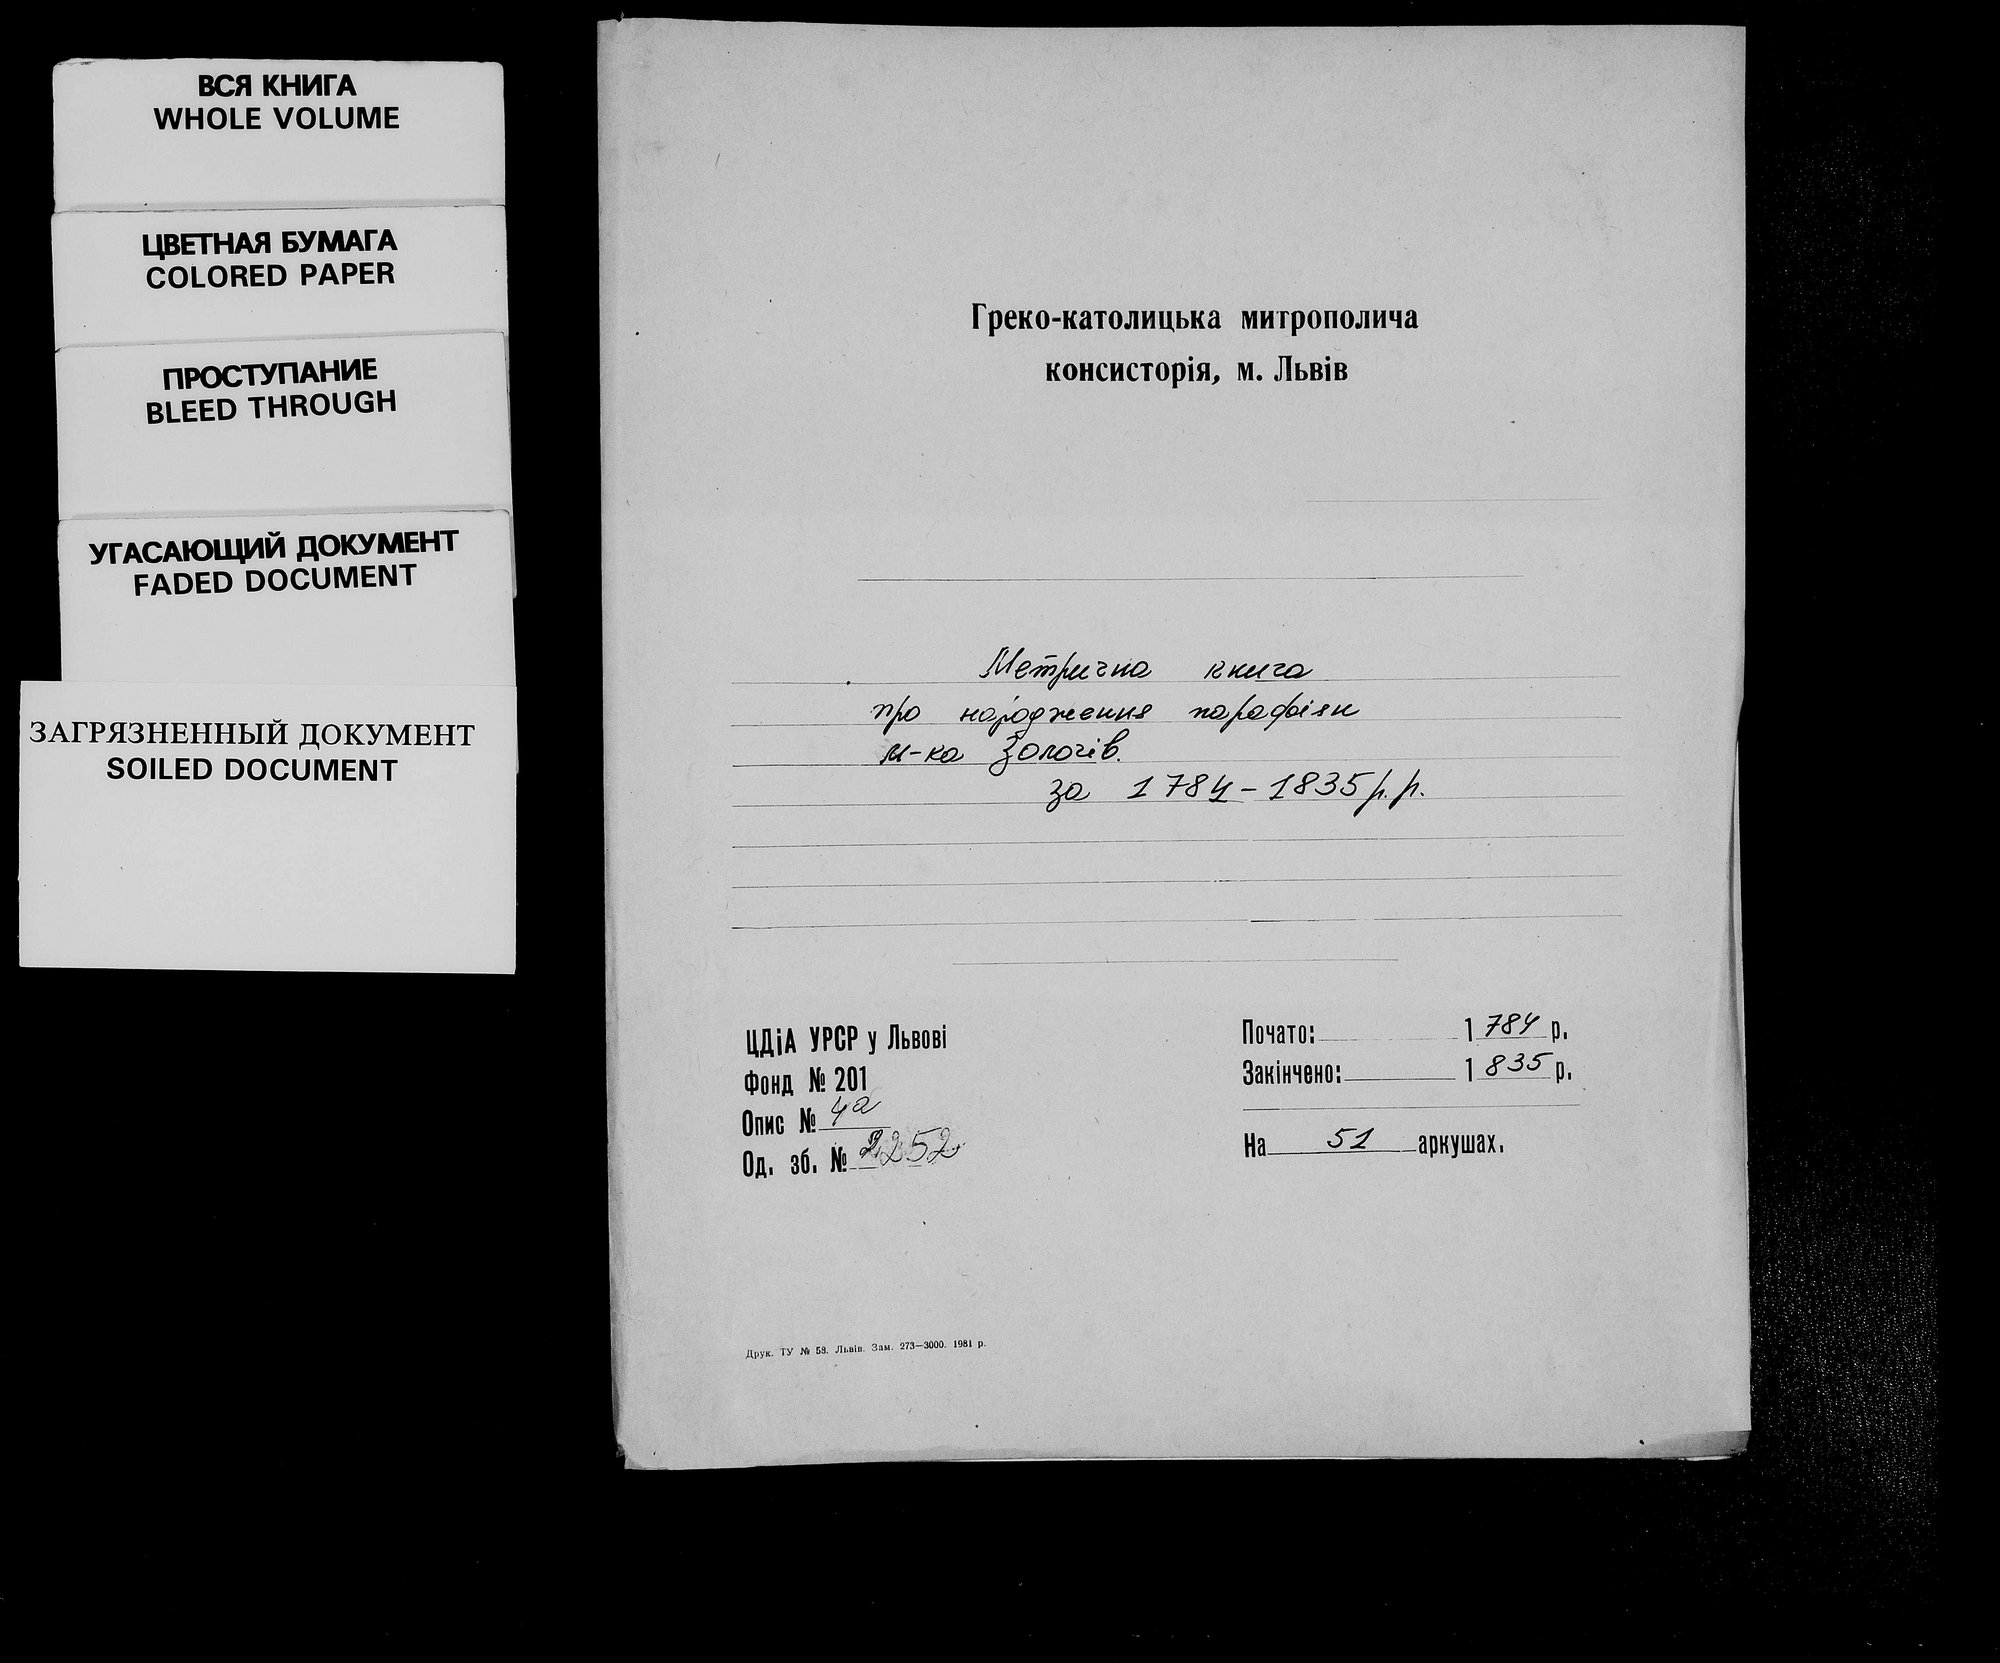 ВСЯ КНИГА
WHOLE VOLUME
ЦВЕТНАЯ БУМАГА
COLORED PAPER
ПРОСТУПАНИЕ
BLEED THROUGH
УГАСАЮЩИЙ ДОКУМЕНТ
FADED DOCUMENT
ЗАГРЯЗНЕННЫЙ ДОКУМЕНТ
SOILED DOCUMENT
Греко-католицька митрополича
консисторія, м. Львів
Метрична книга
про народження парафіян
м-ка Золочів.
за 1784-1835 р.р.
ЦДіА УРСР у Львові
Фонд № 201
Опис № 4а
Од. зб. № 2252
Почато: 1784 р.
Закінчено: 1835 р.
На 51 аркушах.
Друк. ТУ № 58. Львів. Зам. 273—3000. 1981 р.